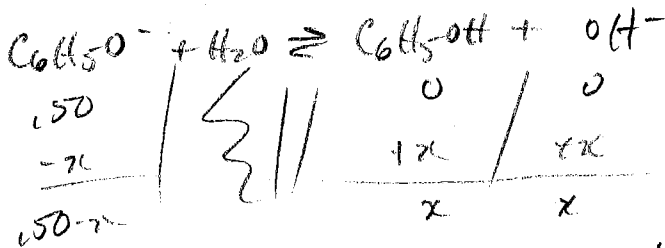 C₆H₅O⁻ + H₂O ⇌ C₆H₅OH + OH⁻
.50 0 0
-x +x +x
.50-x x x